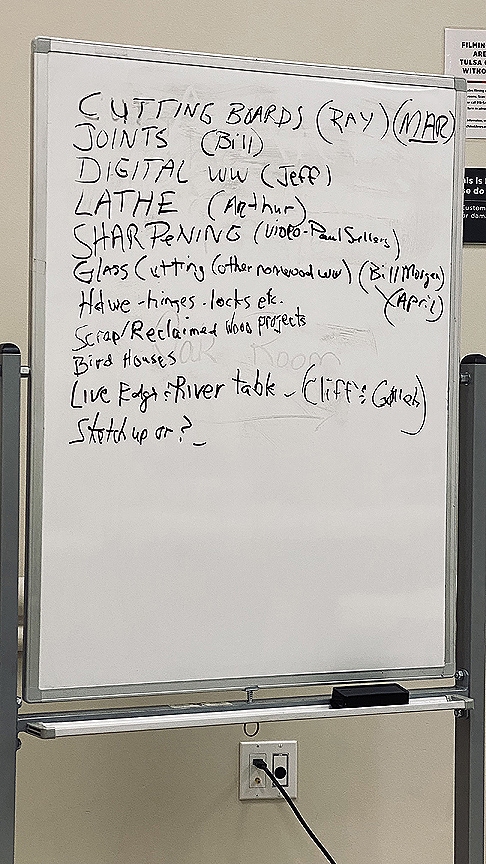 CUTTING BOARDS (RAY) (MAR)
JOINTS (Bill)
DIGITAL WW (Jeff)
LATHE (Arthur)
SHARPENING (VIDEO-Paul Sellers)
GLASS Cutting (other nonwood ww) (Bill Morgan)
(April)
Hdwe -hinges -locks etc.
Scrap/Reclaimed Wood projects
Bird Houses
Live Edge & River table - (Cliff &
Sketchup or?
FILMIN
ARE
TULSA
WITHO